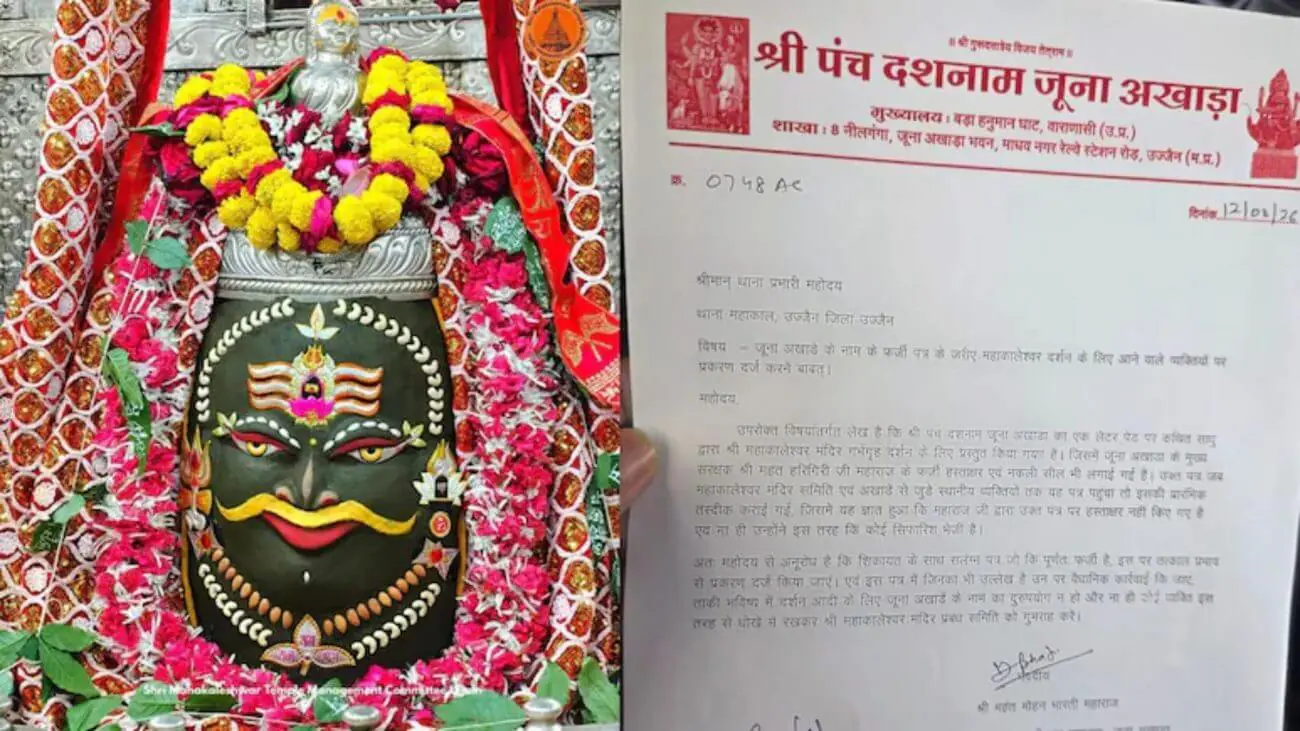 Shri Mahakaleshwar Temple Management Committee Ujjain
॥ श्री गुरूदत्तात्रेय विजय तेतुराम ॥
श्री पंच दशनाम जूना अखाड़ा
मुख्यालय : बड़ा हनुमान घाट, वाराणसी (उ.प्र.)
शाखा : 8 नीलगंगा, जूना अखाड़ा भवन, माधव नगर रेल्वे स्टेशन रोड़, उज्जैन (म.प्र.)
क्र. 0748 AC
दिनांक 12/02/26
श्रीमान् थाना प्रभारी महोदय
थाना महाकाल, उज्जैन जिला-उज्जैन
विषय – जूना अखाडे के नाम के फर्जी पत्र के जरीए महाकालेश्वर दर्शन के लिए आने वाले व्यक्तियों पर
प्रकरण दर्ज करने बाबत्।
महोदय,
उपरोक्त विषयांतर्गत लेख है कि श्री पंच दशनाम जूना अखाडा का एक लेटर पेड पर कथित साधु
द्वारा श्री महाकालेश्वर मंदिर गर्भगृह दर्शन के लिए प्रस्तुत किया गया है। जिसमें जूना अखाडा के मुख्य
सरक्षक श्री महंत हरिगिरी जी महाराज के फर्जी हस्ताक्षर एवं नकली सील भी लगाई गई है। उक्त पत्र जब
महाकालेश्वर मंदिर समिति एवं अखाडे से जुडे स्थानीय व्यक्तियो तक यह पत्र पहुंचा तो इसकी प्रारंभिक
तस्दीक कराई गई, जिसमें यह ज्ञात हुआ कि महाराज जी द्वारा उक्त पत्र पर हस्ताक्षर नही किए गए है
एवं ना ही उन्होंने इस तरह कि कोई सिफारिश भेजी है।
अतः महोदय से अनूरोध है कि शिकायत के साथ सलंग्न पत्र जो कि पूर्णतः फर्जी है, इस पर तत्काल प्रभाव
से प्रकरण दर्ज किया जाएं। एवं इस पत्र में जिनका भी उल्लेख है उन पर वैधानिक कार्रवाई कि जाए,
ताकी भविष्य में दर्शन आदी के लिए जूना अखाडें के नाम का दुरुपयोग न हो और ना ही कोई व्यक्ति इस
तरह से धोखे मे रखकर श्री महाकालेश्वर मंदिर प्रबंध समिति को गुमराह करें।
भवदीय
श्री महंत मोहन भारती महाराज